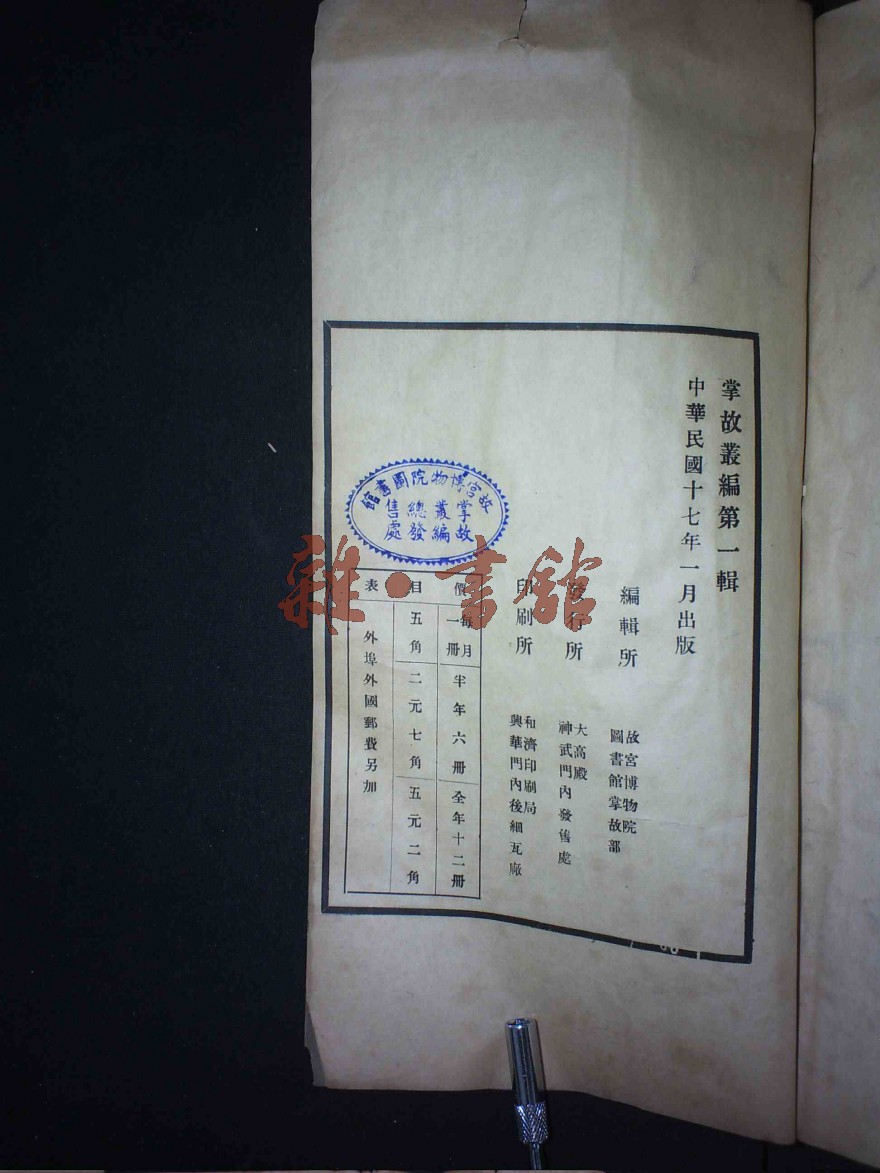 掌故叢編第一輯
中華民國十七年一月出版
編輯所
故宮博物院
圖書館掌故部
發行所
大高殿
神武門內發售處
印刷所
和濟印刷局
興華門內後細瓦廠
價目表
每月一冊
半年六冊
全年十二冊
五角
二元七角
五元二角
外埠外國郵費另加
故宮博物院圖書館
掌故
叢編
總發
售處
雜·書館